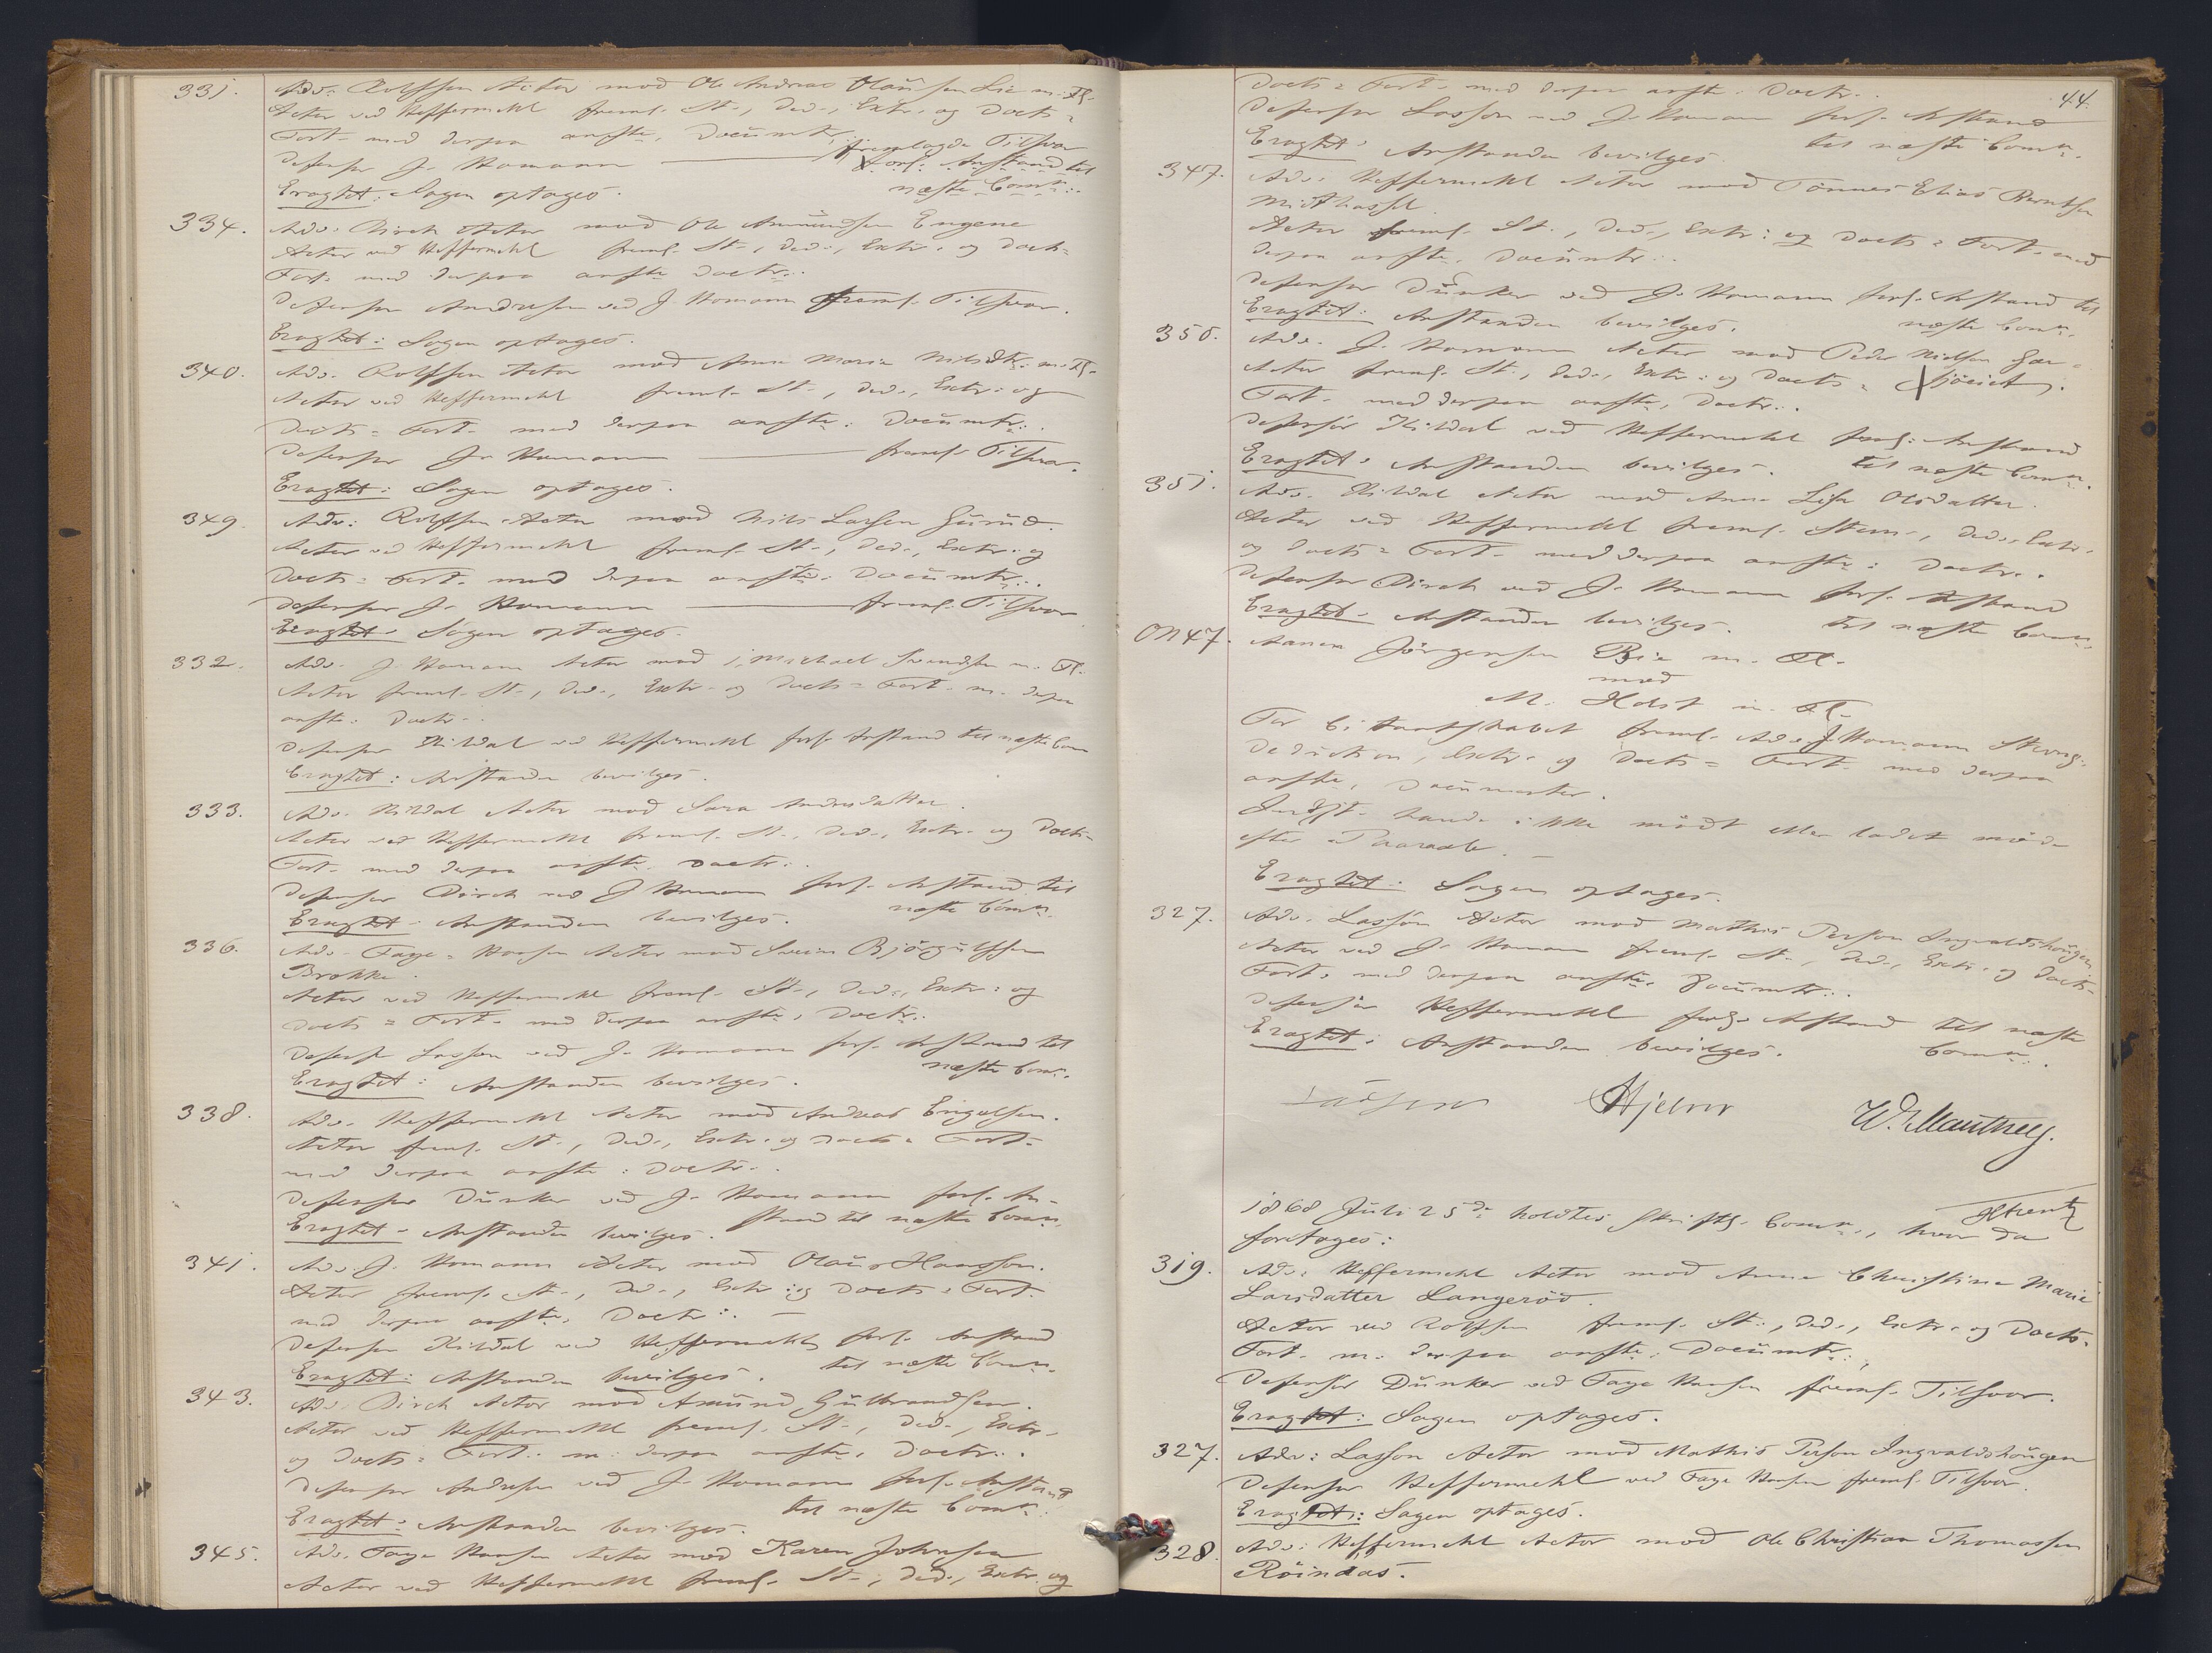 331. Adv: Rolfsen Actor mod Ole Andreas Olaüsen Lie m. Fl.
Actor ved Heffermehl freml. St., Ded., Extr. og Docts=
Fort. med derpaa anfte. Documtr.
Defensor J. Homann ——— fremlagde Tilsvar
forl. Anstand til
næste Comn.
Eragtet: Sagen optages.
334. Adv. Birch Actor mod Ole Amundsen Engene
Actor ved Heffermehl freml. St., Ded., Extr. og Doct=
Fort. med derpaa anfte Doctr.
Defensor Andresen ved J. Homann freml. Tilsvar.
Eragtet: Sagen optages.
340. Adv. Rolfsen Actor mod Anna Maria Nilsdtr. m. Fl.
Actor ved Heffermehl freml. St., Ded., Extr. og
Docts= Fort. med derpaa anfte. Documtr.
Defensor J. Homann ——— freml. Tilsvar.
Eragtet: Sagen optages.
349. Adv: Rolfsen Actor mod Nils Larsen Gürüd.
Actor ved Heffermehl freml. St., Ded., Extr. og
Docts= Fort. med derpaa anfte. Documtr.
Defensor J. Homann ——— freml. Tilsvar
Eragtet: Sagen optages.
332. Adv. J. Homann Actor mod 1, Michael Svendsen m. Fl.
Actor freml. St., Ded., Extr. og Docts= Fort. m. derpaa
anfte. Doctr.
Defensor Kildal ved Heffermehl forl. Anstand til næste Comn
Eragtet: Anstanden bevilges.
333. Adv. Kildal Actor mod Sara Andersdatter.
Actor ved Heffermehl freml. St., Ded., Extr. og Docts=
Fort. med derpaa anfte. Doctr.
Defensor Birch ved J Homann forl. Anstand til
næste Comn.
Eragtet: Anstanden bevilges.
336. Adv. Faye=Hansen Actor mod Svein Bjørgülfsen
Brokke.
Actor ved Heffermehl freml. St., Ded., Extr: og
Docts= Fort. med derpaa anfte. Doctr.
Defensor Lasson ved J. Homann forl. Anstand til
næste Comn.
Eragtet: Anstanden bevilges.
338. Adv. Heffermehl Actor mod Andreas Engelsen.
Actor freml. St., Ded., Extr. og Docts= Fort.
med derpaa anfte: Doctr.
Defensor Dünker ved J. Homann forl. An-
stand til næste Comn.
Eragtet: Anstanden bevilges.
341. Adv. J. Homann Actor mod Olaüs Hansson.
Actor freml. St., Ded., Extr: og Docts= Fort.
med derpaa anfte. Doctr:.
Defensor Kildal ved Heffermehl forl. Anstand
til næste Comn.
Eragtet: Anstanden bevilges.
343. Adv. Birch Actor mod Amünd Gülbrandsen.
Actor ved Heffermehl freml. St., Ded., Extr.
og Docts= Fort. m: derpaa anfte. Doctr.
Defensor Andresen ved J. Homann forl. Anstand
til næste Comn.
Eragtet: Anstanden bevilges.
345. Adv. Faye Hansen Actor mod Karen Johnsen
Actor ved Heffermehl freml. St., Ded., Extr. og
44.
Docts= Fort. med derpaa anfte. Doctr.
Defensor Lasson ved J. Homann forl. Anstand
til næste Comn.
Eragtet: Anstanden bevilges
347. Adv. Heffermehl Actor mod Tönnes Elias Berntsen
Midthassel.
Actor freml. St., Ded., Extr: og Docts= Fort. med
derpaa anfte. Documtr.
Defensor Dünker ved J. Homann forl. Anstand til
næste Comn.
Eragtet: Anstanden bevilges.
350. Adv. J. Homann Actor mod Peder Nielsen
Actor freml. St., Ded., Extr: og Docts=
Fort. med derpaa anfte. Doctr.
Defensor Kildal ved Heffermehl forl: Anstand
til næste Comn.
Eragtet: Anstanden bevilges.
351. Adv. Kildal Actor mod Anne Lise Olsdatter.
Actor ved Heffermehl freml. Stevn., Ded., Extr.
og Docts= Fort. med derpaa anfte: Doctr.
Defensor Birch ved J. Homann forl. Anstand
til næste Comn.
Eragtet: Anstanden bevilges.
ON 47. Aanen Jörgensen Bie m. Fl.
mod
M. Holst m. Fl.
For Citantskabet freml. Adv. J Homann Stevng:
Deduction, Extr. og Docts= Fort. med derpaa
anfte. Documenter.
Indst. havde ikke mödt eller ladet möde
efter Paaraab.
Eragtet: Sagen optages.
327. Adv. Lasson Actor mod Mathis Person Ingvaldshougen
Actor ved J. Homann freml. St., Ded., Extr. og Docts=
Fort. med derpaa anfte. Documtr.
Defensor Heffermehl forl. Anstand til næste
Comn.
Eragtet: Anstanden bevilges.
Lassen Hjelm W. Manthey.
1868 Juli 25de holdtes skriftl. Comn., hvor da
foretages:
319. Adv: Heffermehl Actor mod Anne Christine Marie
Larsdatter Langeröd.
Actor ved Rolfsen freml. St., Ded., Extr. og Docts=
Fort. m. derpaa anfte. Documtr.
Defensor Dünker ved Faye Hansen freml. Tilsvar.
Eragtet: Sagen optages.
327. Adv: Lasson Actor mod Mathis Person Ingvaldshougen
Defensor Heffermehl ved Faye Hansen freml. Tilsvar.
Eragtet: Sagen optages.
328. Adv: Heffermehl Actor mod Ole Christian Thomassen
Röindas.